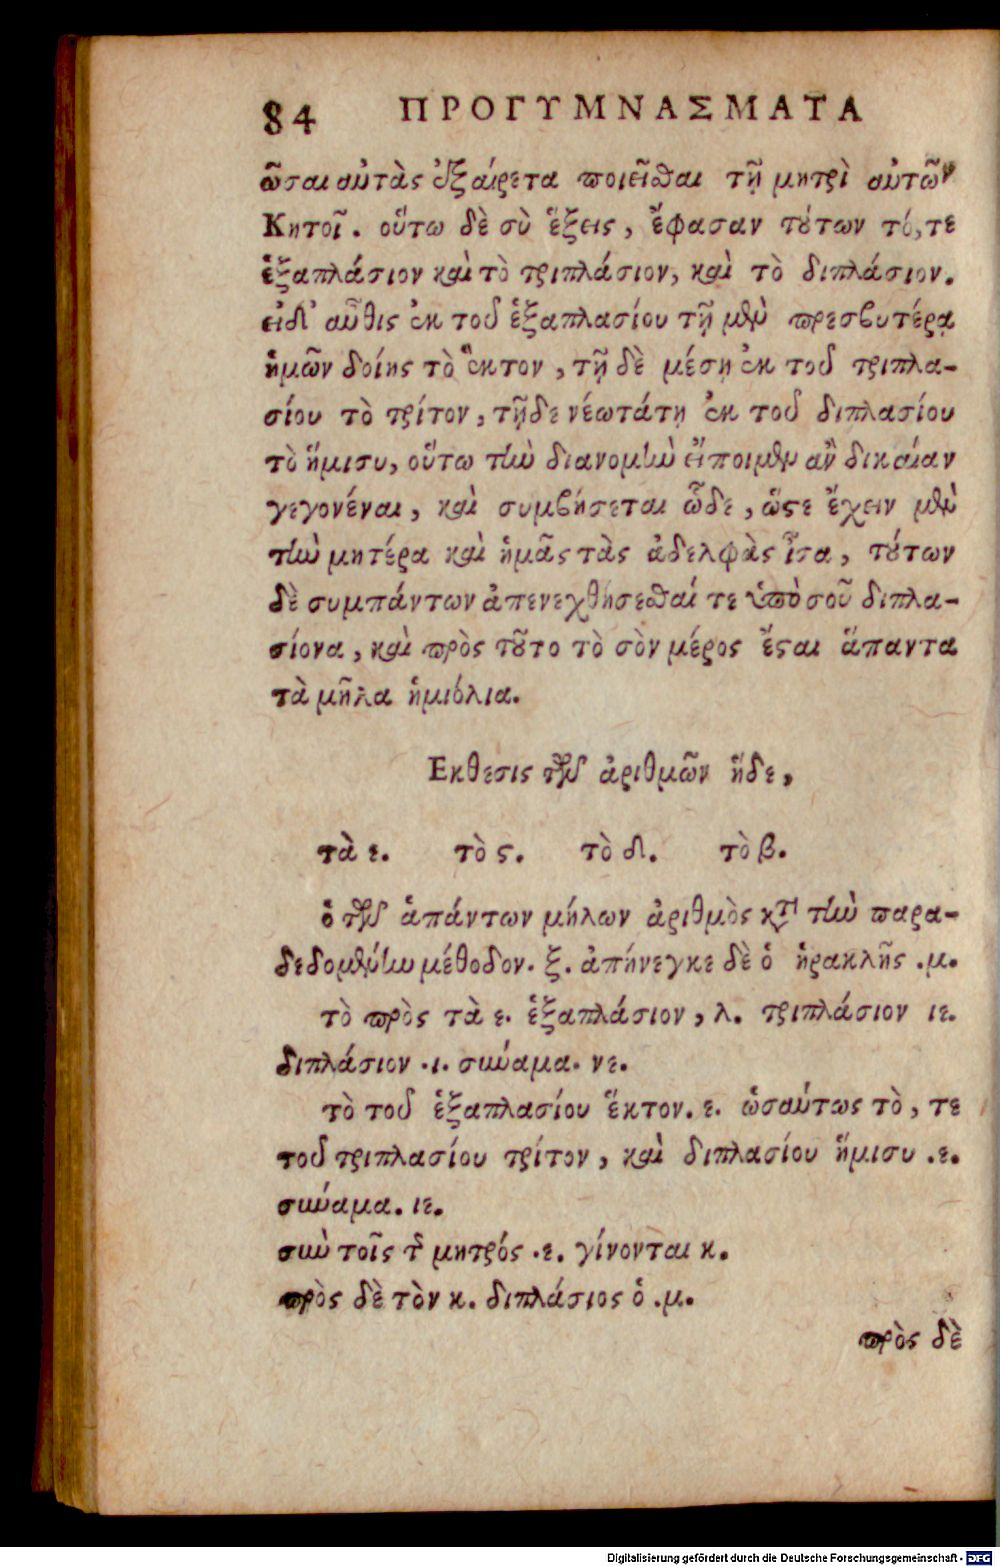 84 ΠΡΟΓΥΜΝΑΣΜΑΤΑ
ῶσαι αὐτὰς ἐξαίρετα ποιεῖσθαι τῇ μητρὶ αὐτῶν
Κητοῖ. οὕτω δὲ σὺ ἕξεις, ἔφασαν τούτων τό, τε
ἑξαπλάσιον καὶ τὸ τριπλάσιον, καὶ τὸ διπλάσιον.
εἰδ᾽ αὖθις ἐκ τοῦ ἑξαπλασίου τῇ μὲν πρεσβυτέρᾳ
ἡμῶν δοίης τὸ ἕκτον, τῇ δὲ μέσῃ ἐκ τοῦ τριπλα-
σίου τὸ τρίτον, τῇδε νέωτάτῃ ἐκ τοῦ διπλασίου
τὸ ἥμισυ, οὕτω τὴν διανομὴν εἴποιμεν ἂν δικαίαν
γεγονέναι, καὶ συμβήσεται ὧδε, ὥστε ἔχειν μὲν
τὴν μητέρα καὶ ἡμᾶς τὰς ἀδελφὰς ἶσα, τούτων
δὲ συμπάντων ἀπενεχθήσεσθαί τε ὑπὸ σοῦ διπλα-
σίονα, καὶ πρὸς τοῦτο τὸ σὸν μέρος ἔσται ἅπαντα
τὰ μῆλα ἡμιόλια.
Εκθεσις τῶν ἀριθμῶν ἥδε,
τὰ ε. τὸ ϛ. τὸ δ. τὸ β.
ὁ τῶν ἁπάντων μήλων ἀριθμὸς κατὰ τὴν παρα-
δεδομένην μέθοδον. ξ. ἀπήνεγκε δὲ ὁ ἡρακλῆς .μ.
τὸ πρὸς τὰ ε. ἑξαπλάσιον, λ. τριπλάσιον ιε.
διπλάσιον .ι. συνάμα. νε.
τὸ τοῦ ἑξαπλασίου ἕκτον. ε. ὡσαύτως τὸ, τε
τοῦ τριπλασίου τρίτον, καὶ διπλασίου ἥμισυ .ε.
συνάμα. ιε.
σὺν τοῖς τῆς μητρός .ε. γίνονται κ.
πρὸς δὲ τὸν κ. διπλάσιος ὁ .μ.
πρὸς δὲ
Digitalisierung gefördert durch die Deutsche Forschungsgemeinschaft - DFG